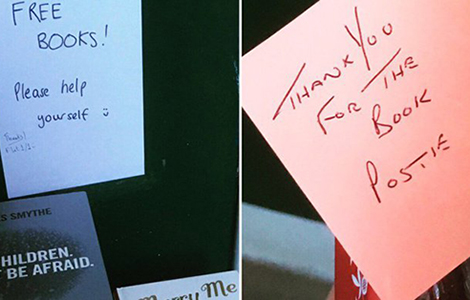 FREE
BOOKS!
Please help
yourself
S SMYTHE
CHILDREN.
BE AFRAID.
Me
THANK YOU
FOR THE
BOOK
POSTIE